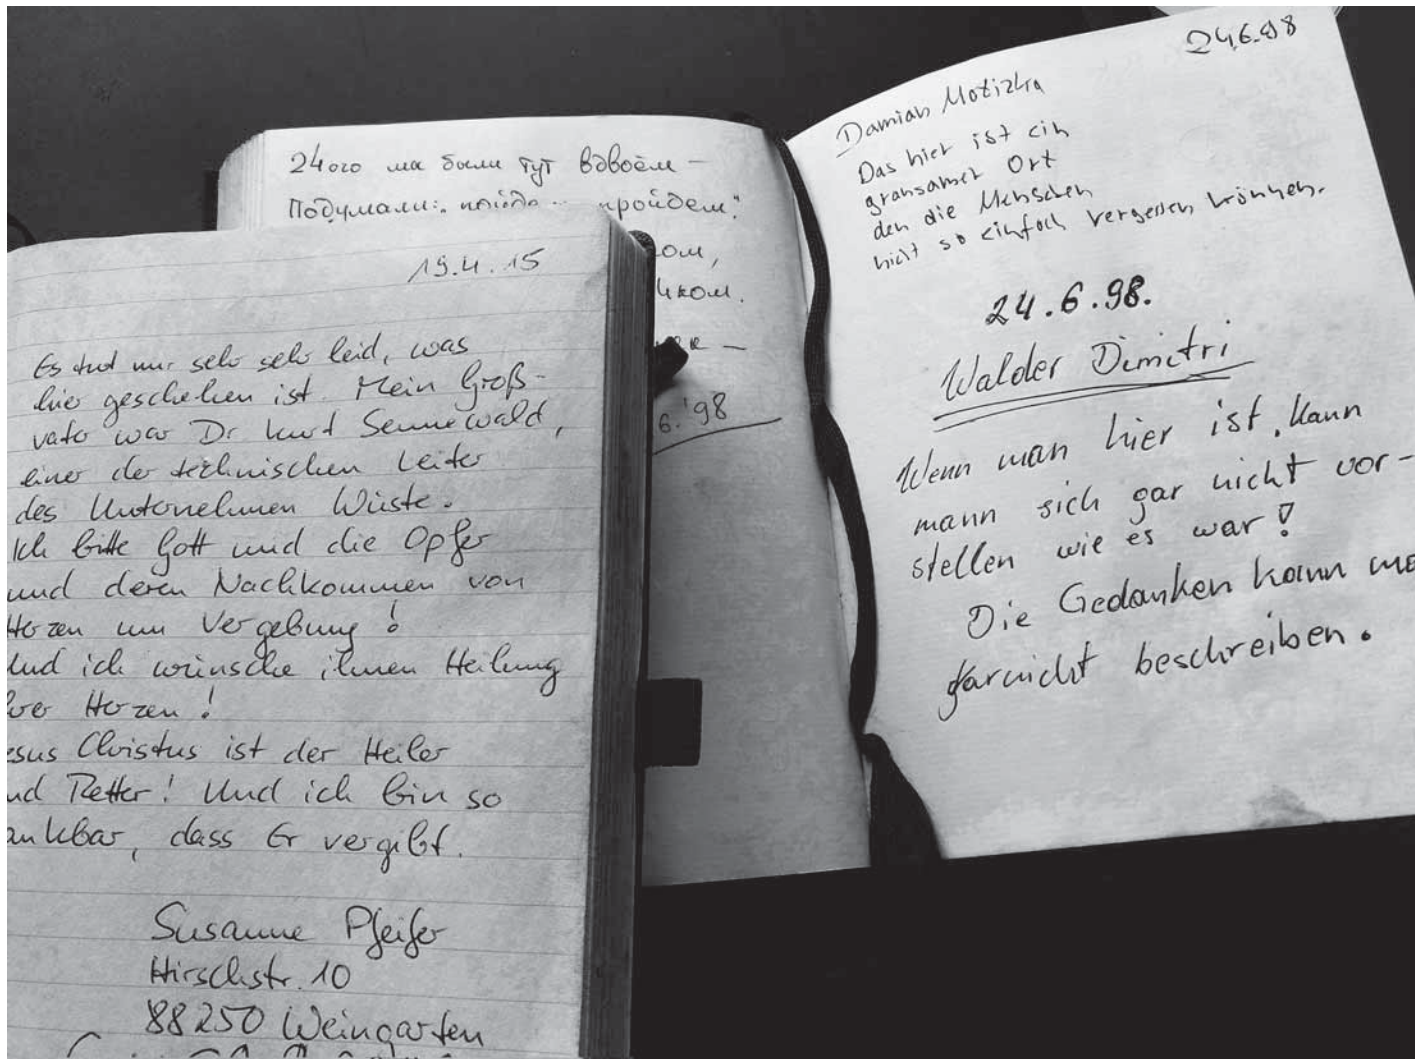 19.4.15
Es tut mir sehr sehr leid, was
hier geschehen ist. Mein Groß-
vater war Dr Kurt Sennewald,
einer der technischen Leiter
des Unternehmen Wüste.
Ich bitte Gott und die Opfer
und deren Nachkommen von
Herzen um Vergebung!
Und ich wünsche ihnen Heilung
Herzen!
esus Christus ist der Heiler
nd Retter! Und ich bin so
ankbar, dass Er vergibt.
Susanne Pfeifer
Hirschstr. 10
88250 Weingarten
24ого мы были тут вдвоём –
Подумали: пройдем."
ом,
6.'98
24.6.98
Damian Motizka
Das hier ist ein
gransamer Ort
den die Menschen
nicht so einfach vergessen können.
24.6.98.
Walder Dimitri
Wenn man hier ist, kann
mann sich gar nicht vor-
stellen wie es war!
Die Gedanken kann ma
garnicht beschreiben.